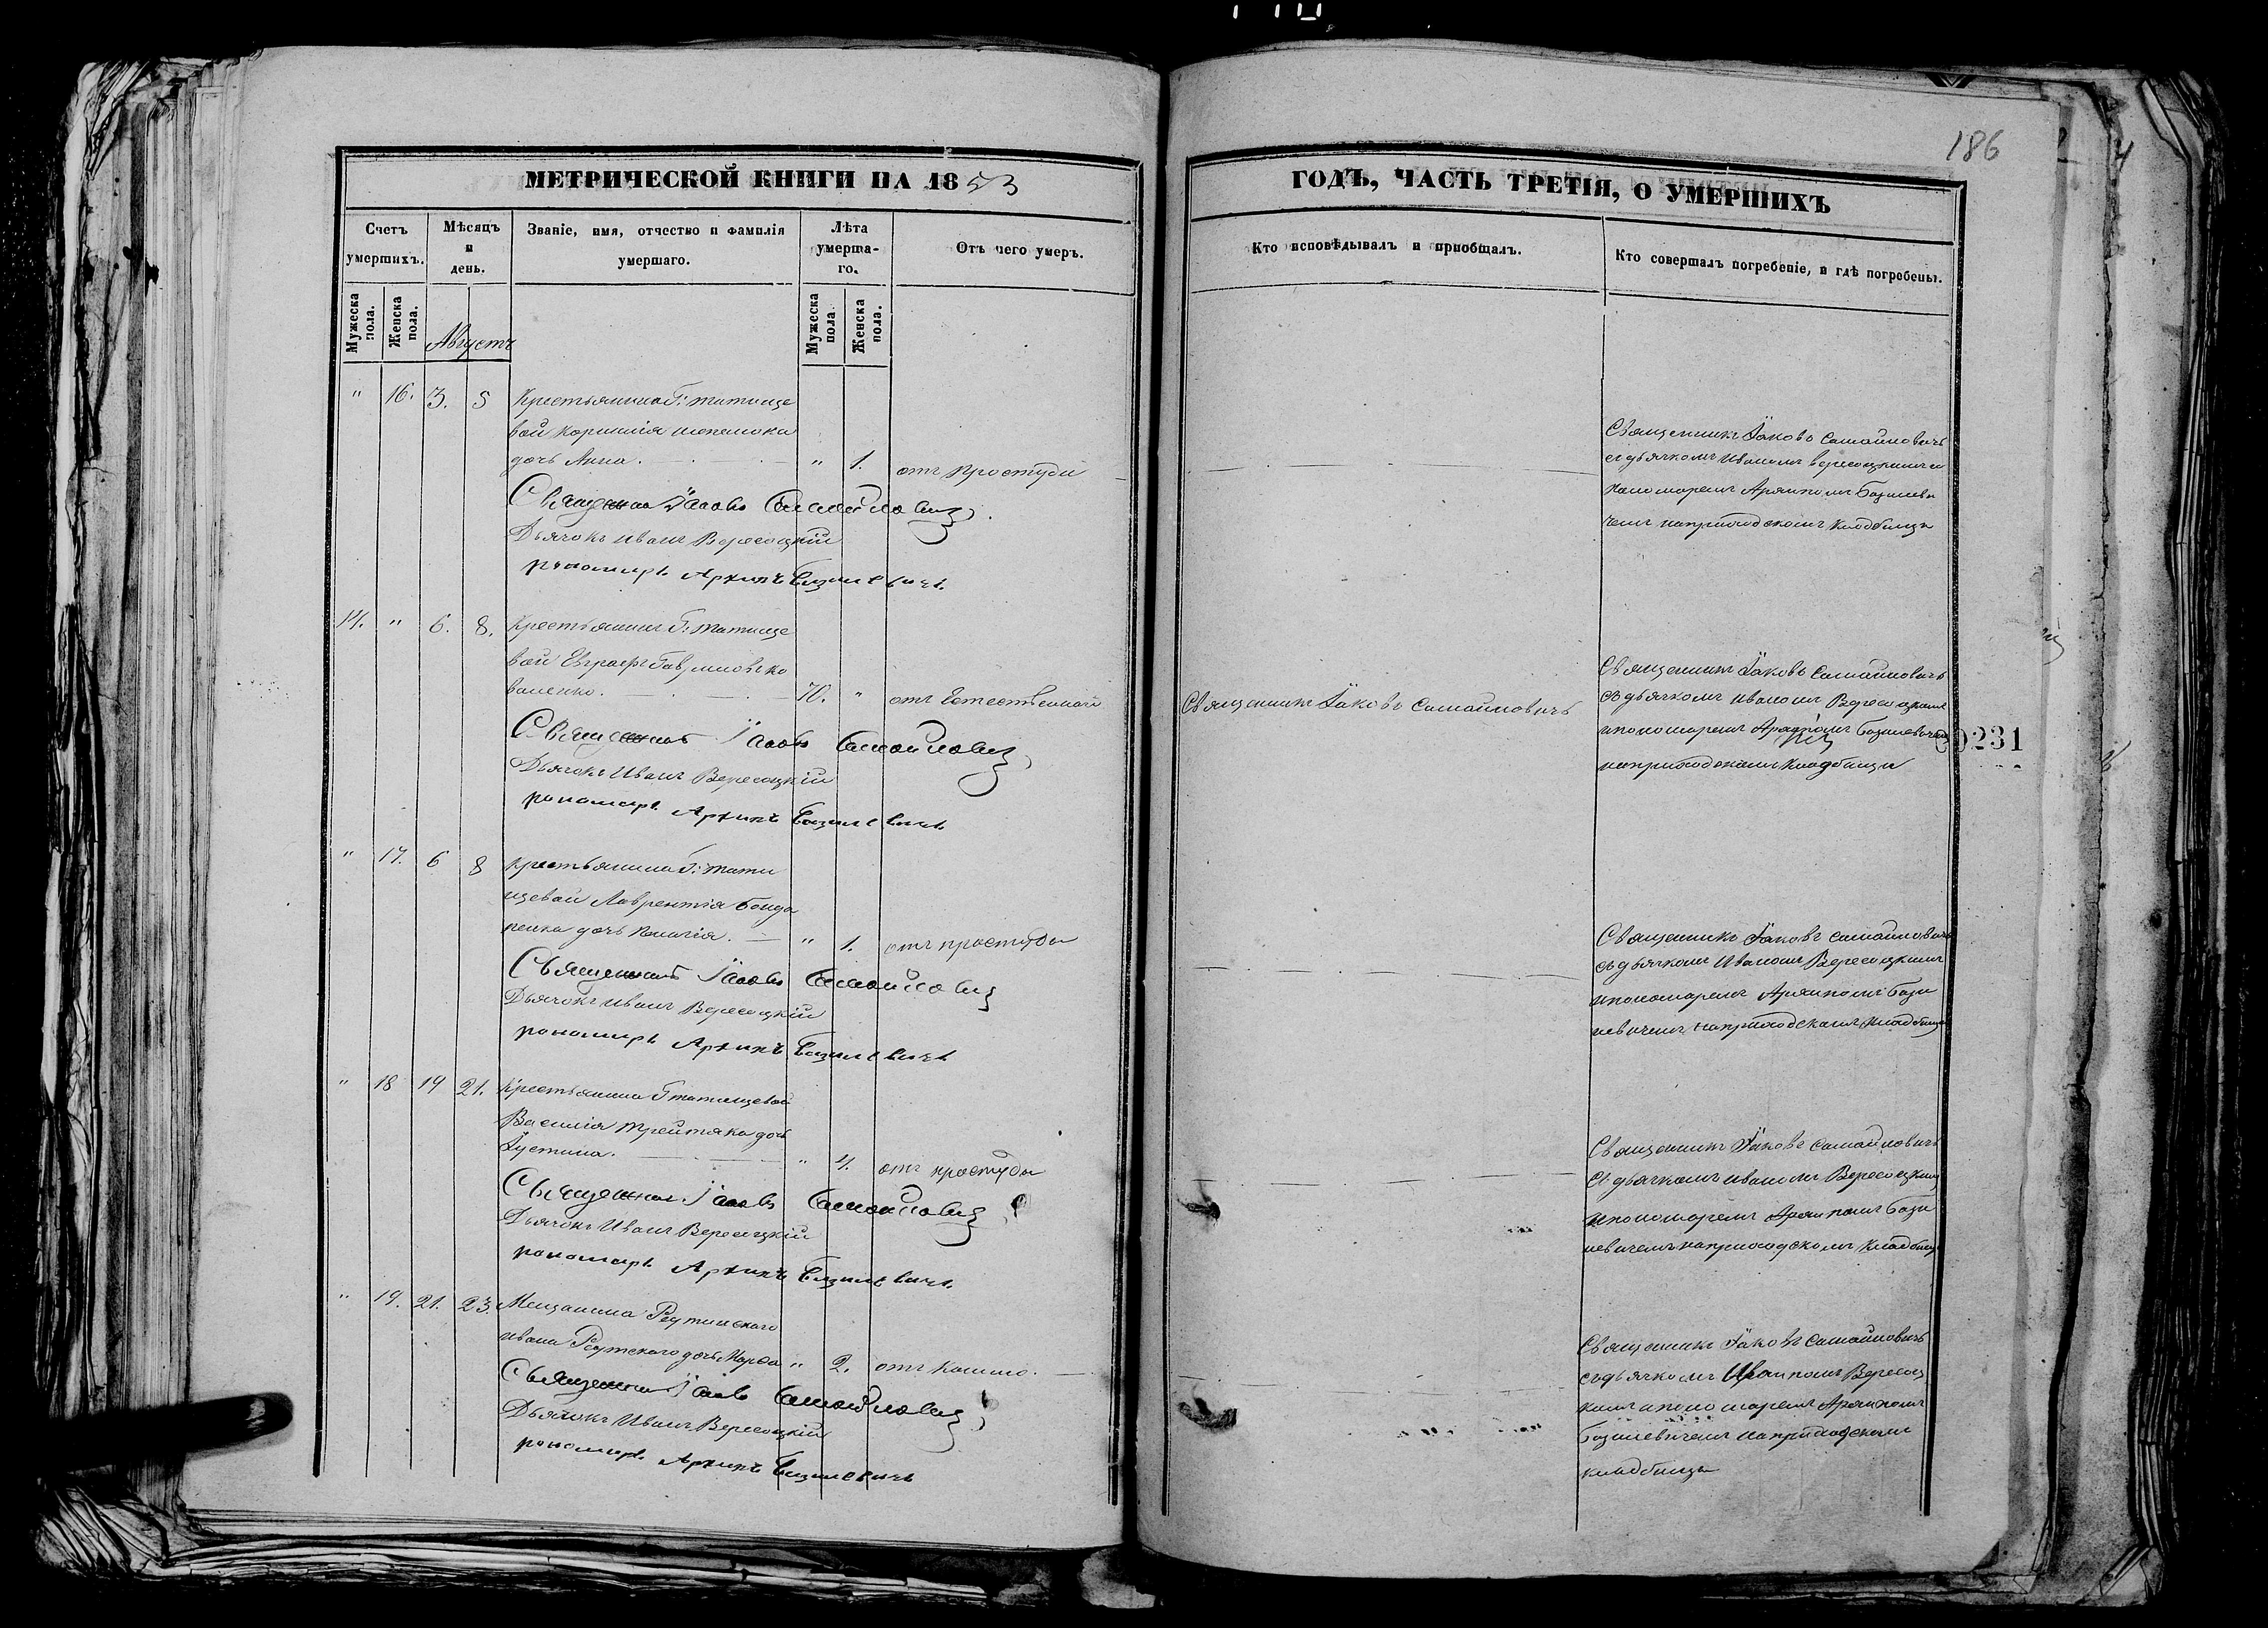 186
МЕТРИЧЕСКОЙ КНИГИ НА 1853
ГОДЪ, ЧАСТЬ ТРЕТІЯ, О УМЕРШИХЪ
Счетъ умершихъ.
Мѣсяцъ и день.
Званіе, имя, отчество и фамилія умершаго.
Лѣта умерша-го.
Отъ чего умеръ.
Кто исповѣдывалъ и приобщалъ.
Кто совершалъ погребеніе, и гдѣ погребены.
Мужеска пола.
Женска пола.
Августъ
Мужеска пола.
Женска пола.
" 16. 3. 5 Крестьянина Г: Татище
вой Корнилія
дочь Анна. " 1. отъ простуди
Священникъ Іаковъ Самойловичъ
Дьячокъ Иванъ Вересоцкій
пономарь Архипъ Базилевичъ
Священникъ Іаковъ Самойловичъ
съ дьячкомъ Иваномъ Вересоцкимъ и
пономаремъ Архипомъ Базилеви
чемъ на приходскомъ кладбищи
14. " 6. 8. Крестьянинъ Г: Татище
вой Евграфъ
валенко. 70. " отъ Естественной
Священникъ Іаковъ Самойловичъ
Дьячокъ Иванъ Вересоцкій
пономарь Архипъ Базилевичъ
Священникъ Іаковъ Самойловичъ
Священникъ Іаковъ Самойловичъ
съ дьячкомъ Иваномъ Вересоцкимъ
и пономаремъ Архипомъ Базилевичемъ
на приходскомъ кладбищи
231
" 17. 6 8 Крестьянина Г: Тати
щевой Лаврентія Бонда
ренка дочь Пелагія. " 1. отъ простуды
Священникъ Іаковъ Самойловичъ
Дьячокъ Иванъ Вересоцкій
пономарь Архипъ Базилевичъ
Священникъ Іаковъ Самойловичъ
съ дьячкомъ Иваномъ Вересоцкимъ
и пономаремъ Архипомъ Бази
левичемъ на приходскомъ кладбищи
" 18 19 21. Крестьянина Г Татищевой
Василія Трейтяка дочь
Іустина. " 4. отъ простуды
Священникъ Іаковъ Самойловичъ
Дьячокъ Иванъ Вересоцкій
пономарь Архипъ Базилевичъ
Священникъ Іаковъ Самойловичъ
съ дьячкомъ Иваномъ Вересоцкимъ
и пономаремъ Архипомъ Бази
левичемъ на приходскомъ кладбищи
" 19. 21. 23. Мещанина
Ивана Реутского дочь Марфа " 2. отъ кашлю.
Священникъ Іаковъ Самойловичъ
Дьячокъ Иванъ Вересоцкій
пономарь Архипъ Базилевичъ
Священникъ Іаковъ Самойловичъ
съ дьячкомъ Вересоц
кимъ и пономаремъ Архипомъ
Базилевичемъ на приходскомъ
кладбищи